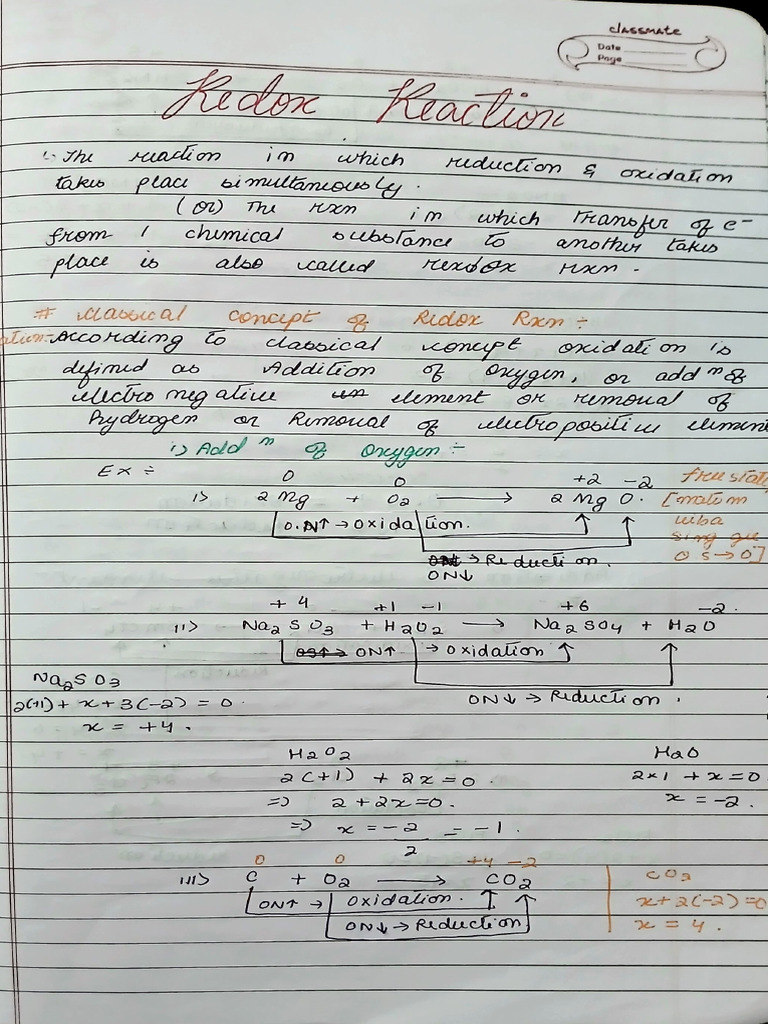 classmate
Date
Page
Redox Reaction
:- The reaction in which reduction & oxidation
takes place simultaneously.
(or) The rxn in which transfer of e-
from 1 chemical substance to another takes
place is also called rexdox rxn.
# Classical concept of Redox Rxn :-
According to classical concept oxidation is
defined as Addition of Oxygen, or addn of
electro negative element or removal of
hydrogen or Removal of electropositive element
i> Addn of Oxygen :-
Ex :-
0 0 +2 -2 free state
i> 2 Mg + O2 → 2 Mg O.
O.N↑ → Oxidation.
→ Reduction.
ON↓
O S → 0]
+4 +1 -1 +6 -2.
ii> Na2SO3 + H2O2 → Na2SO4 + H2O
ON↑ → Oxidation
ON↓ → Reduction.
Na2SO3
2(+1) + x + 3(-2) = 0.
x = +4.
H2O2 H2O
2(+1) + 2x = 0. 2x1 + x = 0
=> 2 + 2x = 0. x = -2.
=> x = -2/2 = -1.
0 0 +4 -2
iii> C + O2 → CO2
ON↑ → Oxidation.
ON↓ → Reduction.
CO2
x + 2(-2) = 0
x = 4.